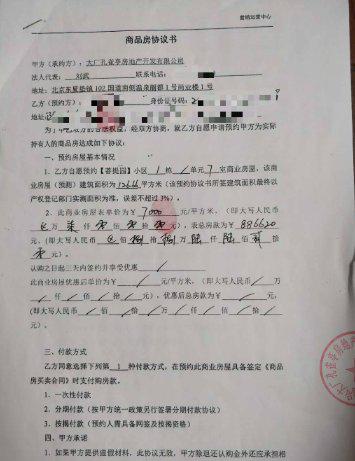 营销运营中心
商品房协议书
甲方（承约方）：大厂孔雀亭房地产开发有限公司
法人代表： 刘武 联系电话：
地址：北京东夏垫镇102国道南侧温泉丽都1号商业楼1号
乙方（预约方）： 身份证号码：
地址
为了 双方的合法权益，经双方协商，就乙方自愿申请预约甲方为实际
持有人的商品房达成如下协议：
一、预约房屋基本情况
1、乙方自愿预约【菩提园】小区 1 栋 单元 7 室商业房屋，该商
业房屋（预测）建筑面积为 平方米（该预约协议书所签建筑面积最终以
产权登记部门实测面积为准，误差不超过3%）。
2、此商业房屋表单价为¥ 7000 元/平方米，（即大写人民币
万 柒 仟 佰 拾 元），表总房款为¥ 886620
元，（即大写人民币 佰 捌 拾 捌 万 陆 仟 陆 佰 贰 拾
元）。
认购之日起三天内签约并享受优惠
此商业房屋优惠后单价为¥ 元/平方米，（即大写人民币 万
仟 佰 拾 元），优惠后总房款为¥ 元，
（即大写人民币 佰 拾 万 仟 佰 拾
元）。
三、付款方式
乙方同意选择下列第 1 种付款方式，在预约此商业房屋具备签定《商品
房买卖合同》时支付购房款。
1、一次性付款
2、分期付款（按甲方统一政策另行签署分期付款协议）
3、按揭付款（预约人需具备网签及按揭资格）
四、甲方承诺
1、如果甲方提供虚假材料，此协议无效，甲方除退还认购金外还应承担相